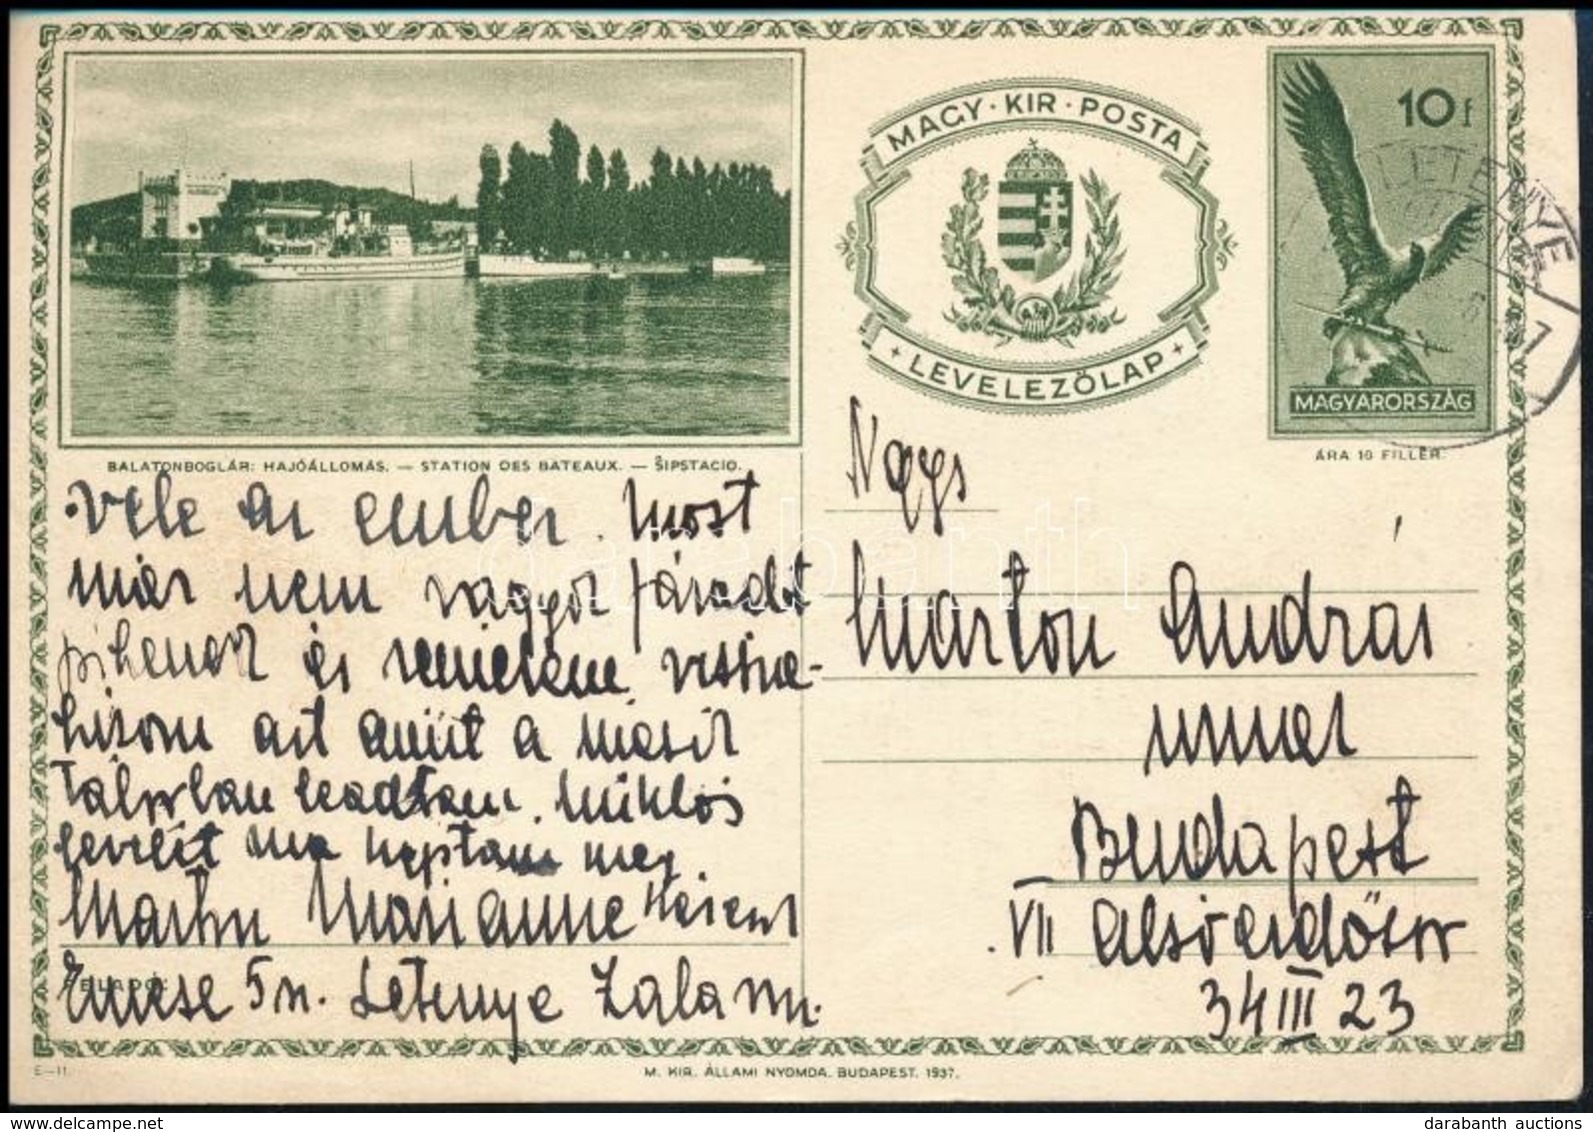 MAGY · KIR · POSTA
LEVELEZŐLAP
10 f
MAGYARORSZÁG
ÁRA 10 FILLÉR.
LETENYE
1
BALATONBOGLÁR: HAJÓÁLLOMÁS. — STATION DES BATEAUX. — ŠIPSTACIO.
vele az ember. Most
már nem vagyok fáradt
pihenek és
hízom azt amit a másik
táborban leadtam. Miklós
levelét ma kaptam meg.
Marton Marianne
FELADÓ:
Emese 5 n. Letenye Zala m.
Nags
Marton András
úrnak
Budapest
VII Alsóerdősor
34 III 23
E—11.
M. KIR. ÁLLAMI NYOMDA. BUDAPEST. 1937.
darabanth
darabanth auctions